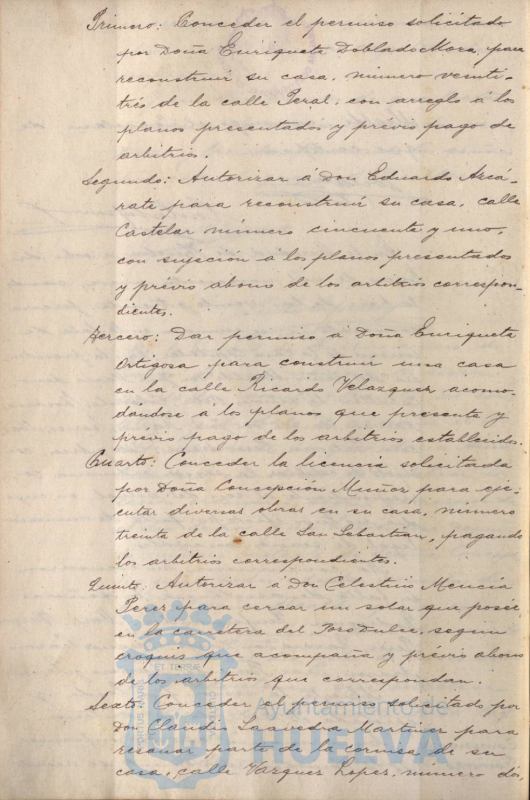 Primero: Conceder el permiso solicitado
por Doña Enriqueta Doblado Mora, para
reconstruir su casa, número veinti-
trés de la calle Peral, con arreglo á los
planos presentados y prévio pago de
arbitrios.
Segundo: Autorizar á Don Eduardo Azcá-
rate para reconstruir su casa, calle
Castelar número cincuenta y uno,
con sujeción á los planos presentados
y prévio abono de los arbitrios correspon-
dientes.
Tercero: Dar permiso á Doña Enriqueta
Ortigosa para construir una casa
en la calle Ricardo Velazquez, acomo-
dándose á los planos que presenta y
prévio pago de los arbitrios establecidos.
Cuarto: Conceder la licencia solicitada
por Doña Concepción Muñoz para eje-
cutar diversas obras en su casa, número
treinta de la calle San Sebastian, pagando
los arbitrios correspondientes.
Quinto: Autorizar á Don Celestino Mencia
Perez para cercar un solar que posée
en la carretera del Pozo Dulce, segun
croquis que acompaña y prévio abono
de los arbitrios que correspondan.
Sexto: Conceder el permiso solicitado por
Don Claudio Saavedra Martinez para
recavar parte de la cornisa de su
casa, calle Vazquez Lopez, número dos,
Ayuntamiento de
HUELVA